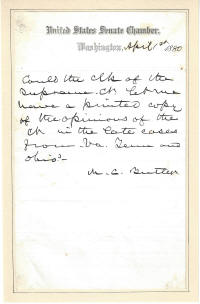 United States Senate Chamber,
Washington, April 1st 1880
Could the clk of the
Supreme Ct let me
have a printed copy
of the opinions of the
Ct in the late cases
from Va. Tenn and
Ohio?
M. C. Butler